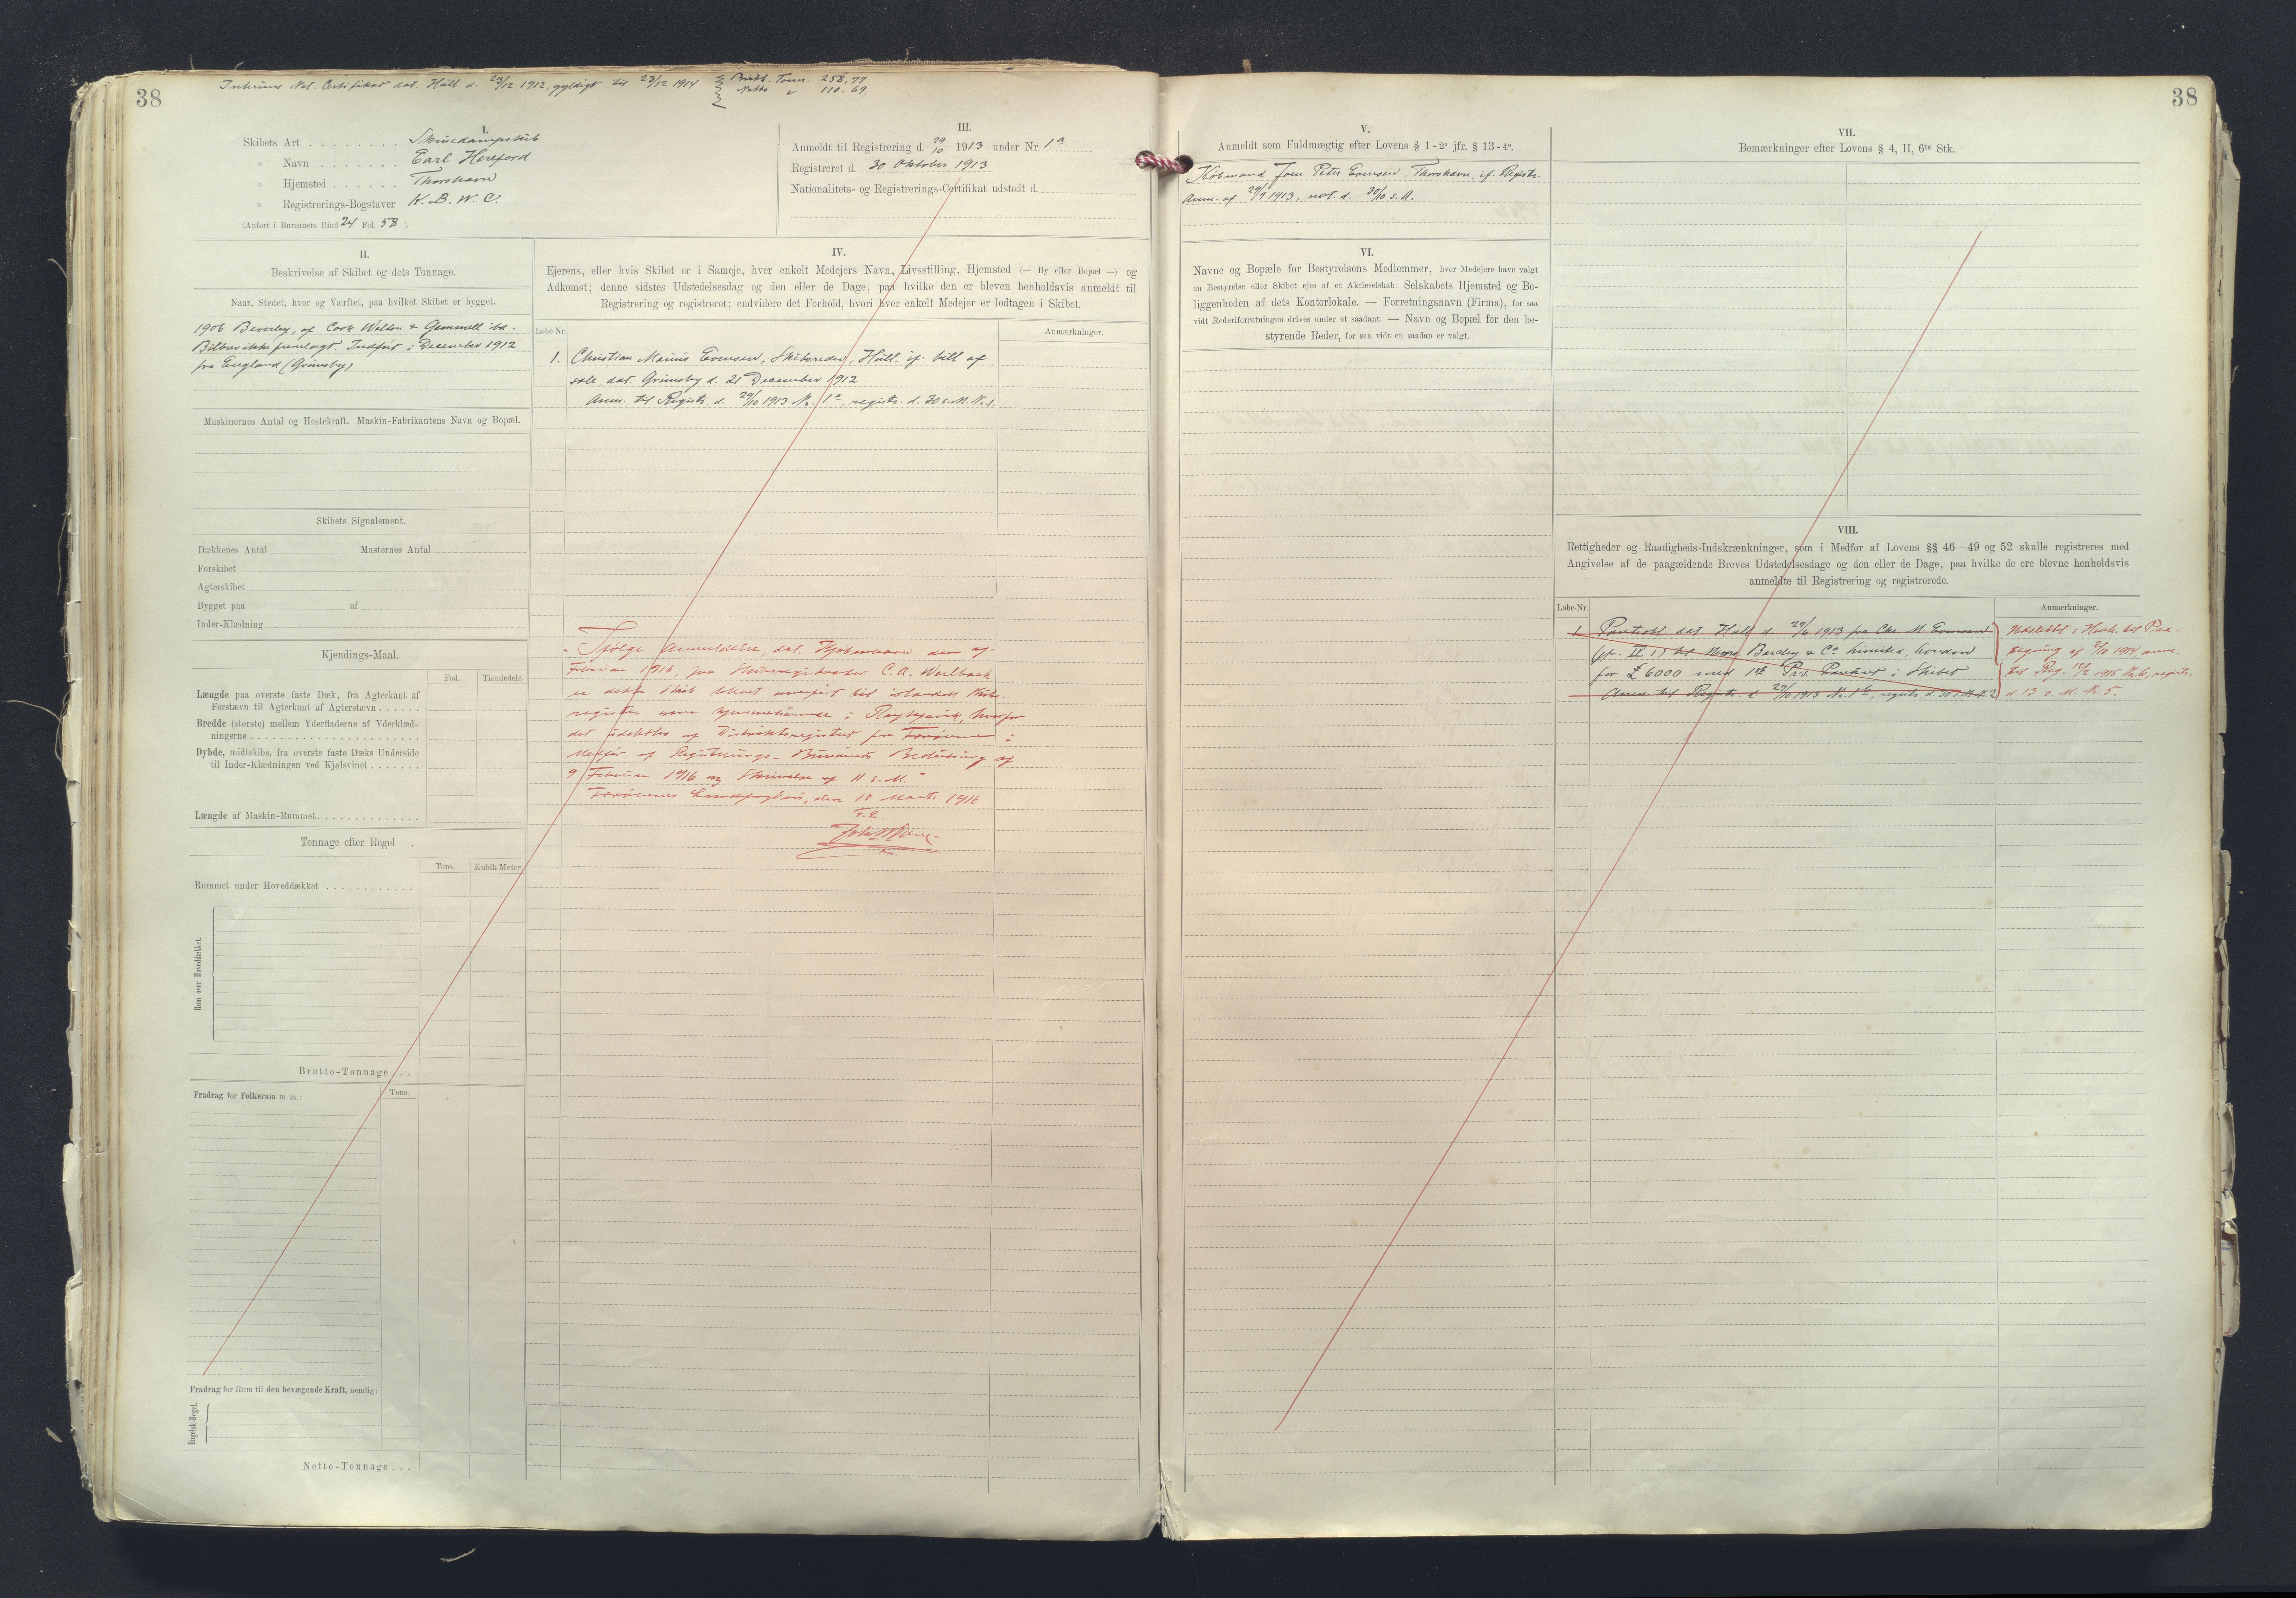 38
Interims Nat. Certifikat dat. Hull d. 23/12 1912, gyldigt til 23/12 1914
Brutto Tonn. 258,77
Netto " 110.69.
I.
Skibets Art . . . . . . . . Skruedampskib
" Navn . . . . . . . Earl Hereford
" Hjemsted . . . . . . Thorshavn
" Registrerings-Bogstaver K. B. W. C.
(Anført i Bureauets Bind 24 Fol. 58 ).
III.
Anmeldt til Registrering d. 29/10 1913 under Nr. 1a
Registreret d. 30 Oktober 1913
Nationalitets- og Registrerings-Certifikat udstedt d.
II.
Beskrivelse af Skibet og dets Tonnage.
Naar, Stedet, hvor og Værftet, paa hvilket Skibet er bygget.
1906 Beverley, af Cook Welton & Gemmell ltd.
Bilbrev ikke fremlagt. Indført i December 1912
fra England (Grimsby)
Maskinernes Antal og Hestekraft. Maskin-Fabrikantens Navn og Bopæl.
Skibets Signalement.
Dækkenes Antal Masternes Antal
Forskibet
Agterskibet
Bygget paa af
Inder-Klædning
Kjendings-Maal.
Fod. Tiendedele.
Længde paa øverste faste Dæk, fra Agterkant af
Forstævn til Agterkant af Agterstævn . . . . . .
Bredde (største) mellem Yderfladerne af Yderklæd-
ningerne . . . . . . . . . . . . . . . . . . . . .
Dybde, midtskibs, fra øverste faste Dæks Underside
til Inder-Klædningen ved Kjølsvinet . . . . . . .
Længde af Maskin-Rummet . . . . . . . . . . . . .
Tonnage efter Regel .
Tons. Kubik-Meter.
Rummet under Hoveddækket . . . . . . . . . . . .
Rum over Hoveddækket.
Brutto-Tonnage . . .
Fradrag for Folkerum m. m.: Tons.
Fradrag for Rum til den bevægende Kraft, nemlig:
Engelsk-Regel.
Netto-Tonnage . . .
IV.
Ejerens, eller hvis Skibet er i Sameje, hver enkelt Medejers Navn, Livsstilling, Hjemsted (— By eller Bopæl —) og
Adkomst; denne sidstes Udstedelsesdag og den eller de Dage, paa hvilke den er bleven henholdsvis anmeldt til
Registrering og registreret; endvidere det Forhold, hvori hver enkelt Medejer er lodtagen i Skibet.
Løbe-Nr. Anmærkninger.
1. Christian Marius Evensen, Skibsreder, Hull, if. bill of
sale, dat. Grimsby d. 21 December 1912.
Anm. til Registr. d. 29/10 1913 Nr. 1a, registr. d. 30 s. M. Nr. 1.
"Ifølge Anmeldelse, dat. Kjøbenhavn den
Februar 1916, fra C. A.
er dette Skib blevet overført til islandsk Skibs-
register som hjemmehørende i Reykjavik, hvorfor
det udslettes af Distriktsregistret for Færøerne i
Medfør af Registrerings-Bureauets Beslutning af
9 Februar 1916 og Skrivelse af 11 s. M."
Færøernes Landfogderi, den 10 Marts 1916
38
V.
Anmeldt som Fuldmægtig efter Lovens § 1-2° jfr. § 13-4°.
Købmand Jens Peter Evensen, Thorshavn, if. Registr.
Anm. af 29/9 1913, not. d. 30/10 s. A.
VI.
Navne og Bopæle for Bestyrelsens Medlemmer, hvor Medejere have valgt
en Bestyrelse eller Skibet ejes af et Aktieselskab; Selskabets Hjemsted og Be-
liggenheden af dets Kontorlokale. — Forretningsnavn (Firma), for saa
vidt Rederiforretningen drives under et saadant. — Navn og Bopæl for den be-
styrende Reder, for saa vidt en saadan er valgt.
VII.
Bemærkninger efter Lovens § 4, II, 6te Stk.
VIII.
Rettigheder og Raadigheds-Indskrænkninger, som i Medfør af Lovens §§ 46—49 og 52 skulle registreres med
Angivelse af de paagældende Breves Udstedelsesdage og den eller de Dage, paa hvilke de ere blevne henholdsvis
anmeldte til Registrering og registrerede.
Løbe-Nr. Anmærkninger.
1. Pantebr. dat. Hull d. 29/ 1913 fra Chr. M. Evensen
(jfr. IV 1) til Barclay & Co Limited, London
for £ 6000 med 1st Pri. Panteret i Skibet
Anm. til Registr. d. 29/10 1913 Nr. 1b, registr. d. 30 s. M. Nr. 2
Udslettet i Henh. til Paa-
tegning af /10 1914 anm.
til Reg. 12/2 1915 Nr. 6, registr.
d. 13 s. M. Nr. 5.